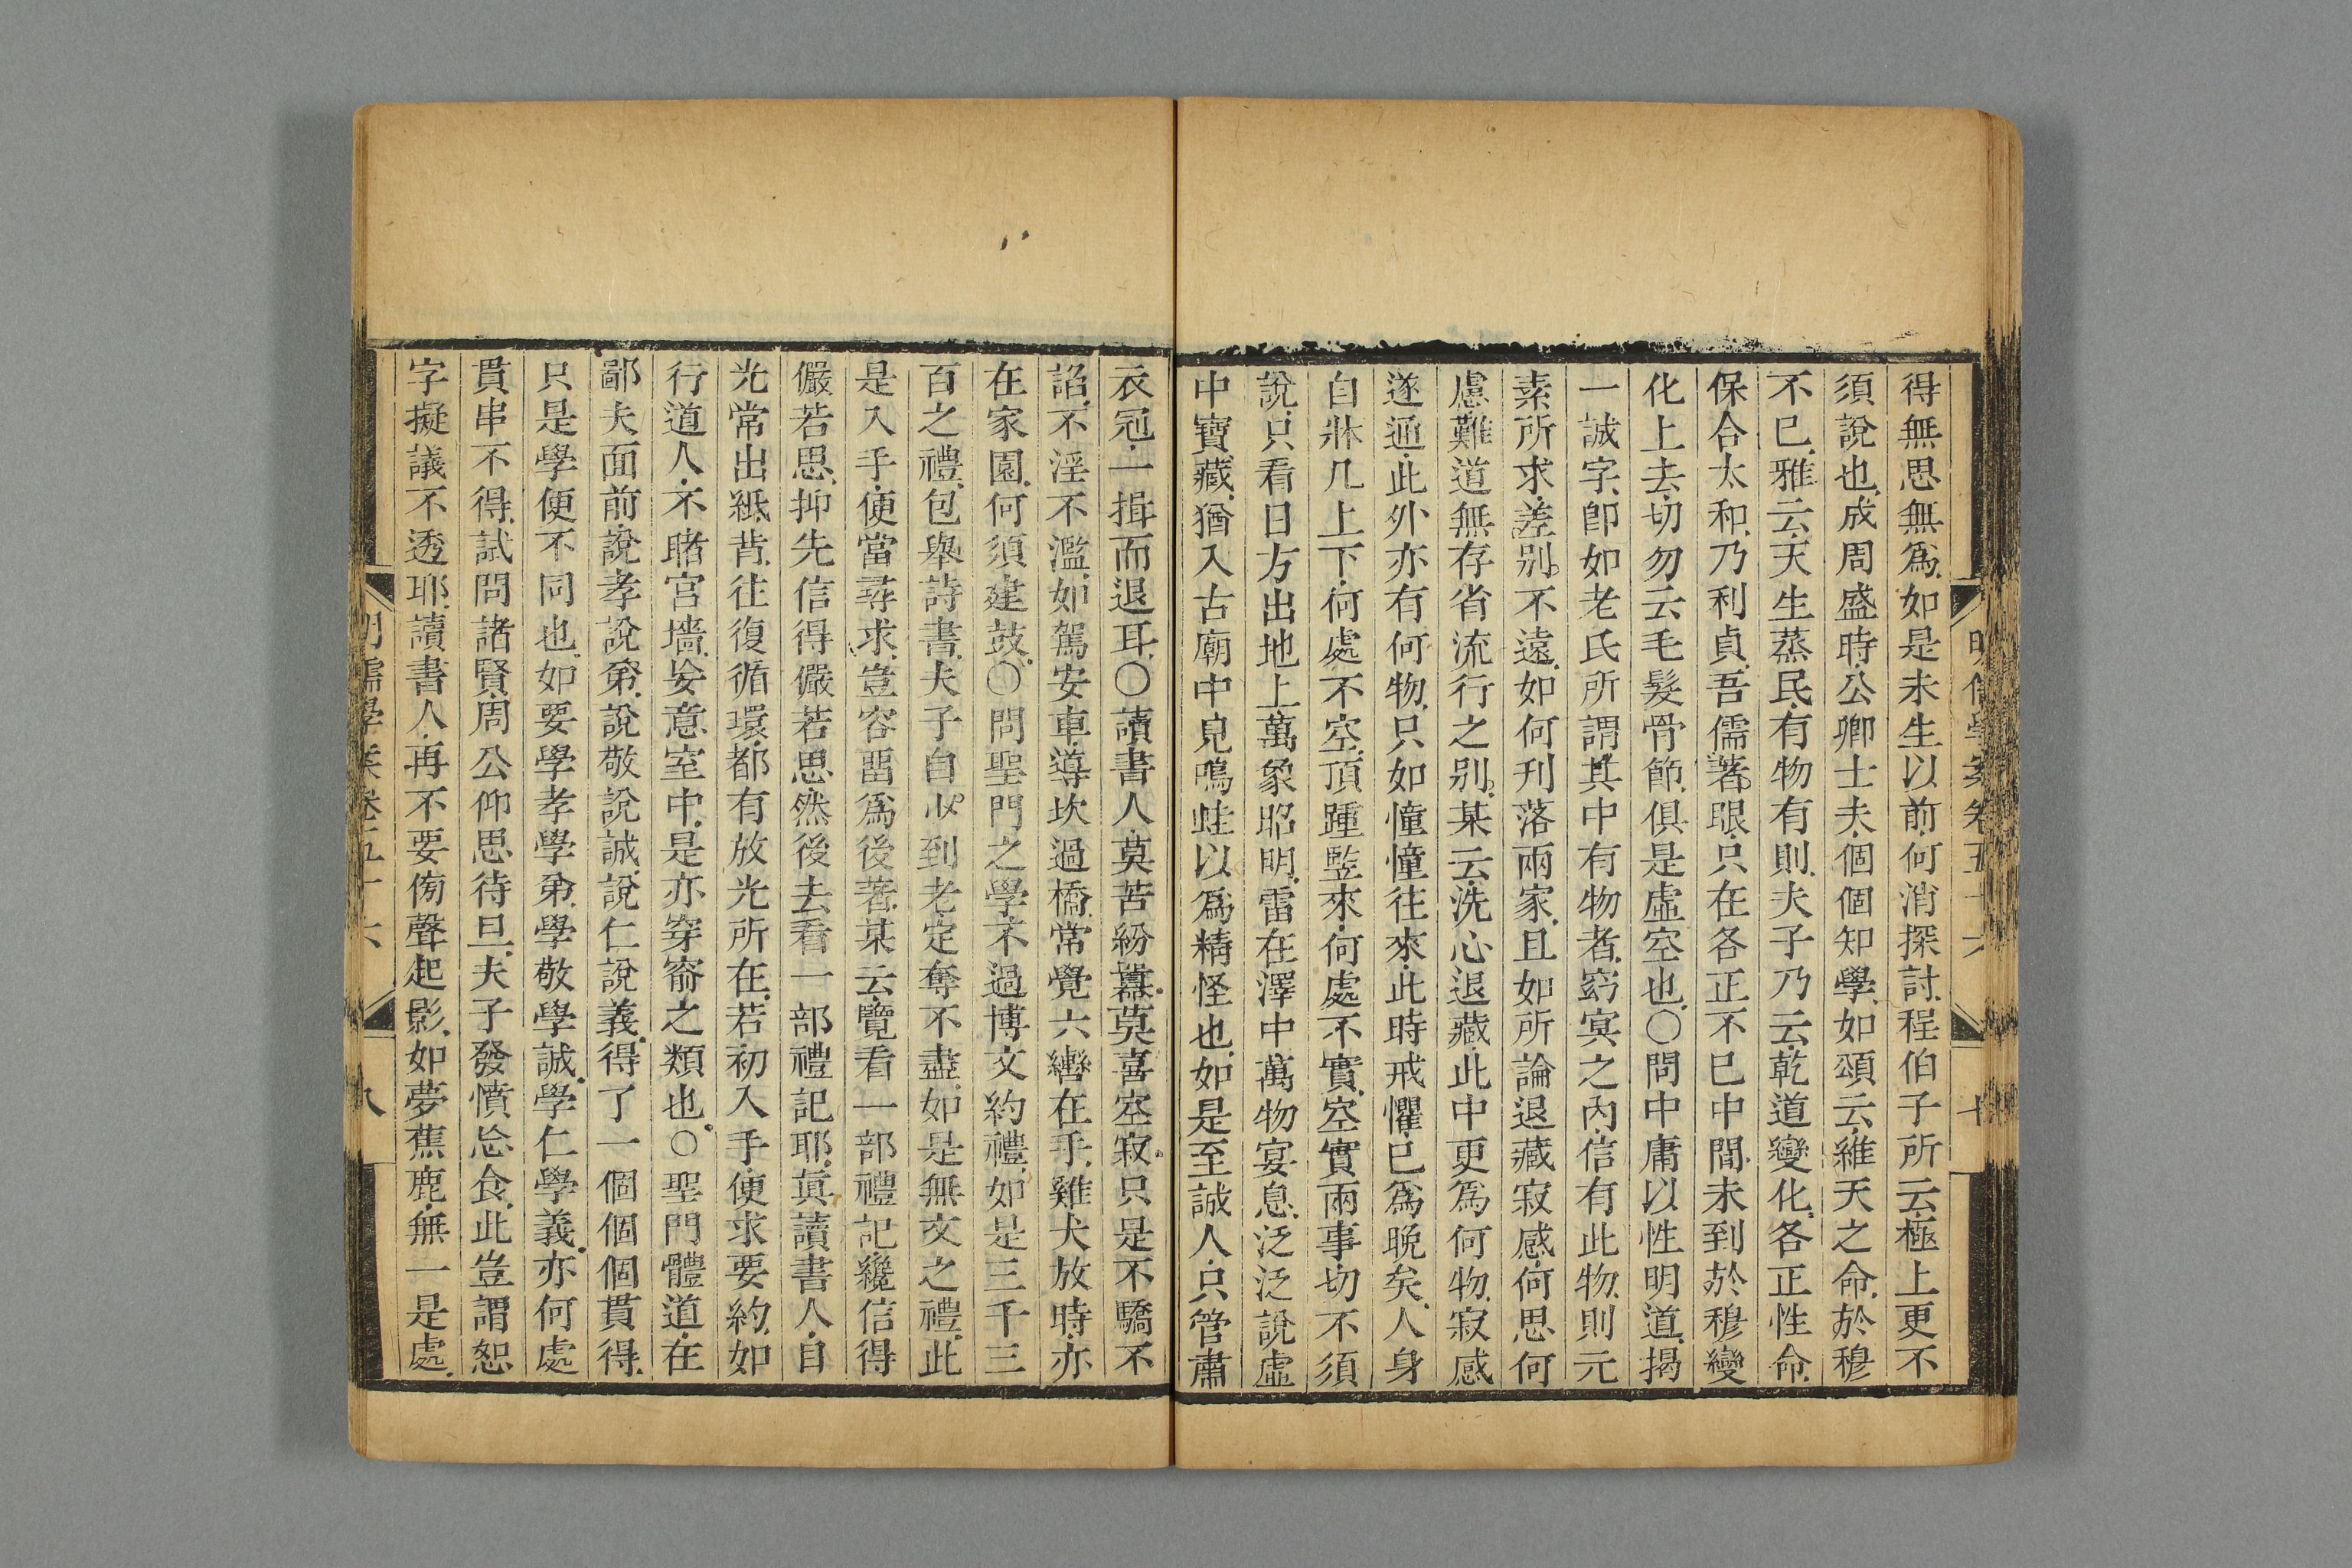 明儒學案卷五十六
得無思無為如是未生以前何消探討程伯子所云極上更不
須說也成周盛時公卿士夫個個知學如頌云維天之命於穆
不已雅云天生蒸民有物有則夫子乃云乾道變化各正性命
保合太和乃利貞吾儒著眼只在各正不已中間未到於穆變
化上去切勿云毛髮骨節俱是虛空也○問中庸以性明道揭
一誠字即如老氏所謂其中有物者窈冥之內信有此物則元
素所求差別不遠如何刋落兩家且如所論退藏寂感何思何
慮難道無存省流行之別某云洗心退藏此中更爲何物寂感
遂通此外亦有何物只如憧憧往來此時戒懼已爲晚矣人身
自牀几上下何處不空頂踵豎來何處不實空實兩事切不須
說只看日方出地上萬象昭明雷在澤中萬物宴息泛泛說虛
中寶藏猶入古廟中見鳴蛙以爲精怪也如是至誠人只管肅
衣冠一揖而退耳○讀書人莫苦紛囂莫喜空寂只是不驕不
諂不淫不濫如駕安車導坎過橋常覺六轡在手雞犬放時亦
在家園何須建鼓○問聖門之學不過博文約禮如是三千三
百之禮包舉詩書夫子自少到老定奪不盡如是無文之禮此
是入手便當尋求豈容畱爲後著某云覽看一部禮記纔信得
儼若思抑先信得儼若思然後去看一部禮記耶眞讀書人自
光常出紙背往復循環都有放光所在若初入手便求要約如
行道人不睹宮墻妄意室中是亦穿窬之類也○聖門體道在
鄙夫面前說孝說第說敬說誠說仁說義得了一個個個貫得
只是學便不同也如要學孝學第學敬學誠學仁學義亦何處
貫串不得試問諸賢周公仰思待旦夫子發憤忘食此豈謂恕
字擬議不透耶讀書人再不要傍聲起影如夢蕉鹿無一是處
明儒學案卷五十六